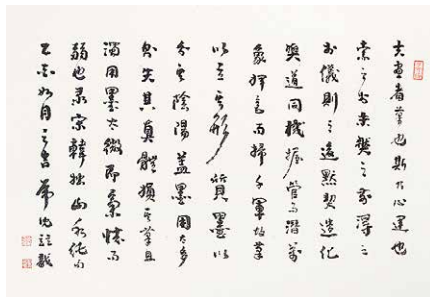 夫畫者筆也斯乃心運也
索之於未狀之前得之
於儀則之後默契造化
與道同機握管而潛萬
象揮毫而掃千軍故筆
以立其形質墨以
分其陰陽蓋墨用太多
則失其真體損其筆且
濁用墨太微即氣怯而
弱也录宋韓拙山水純
如月之吉